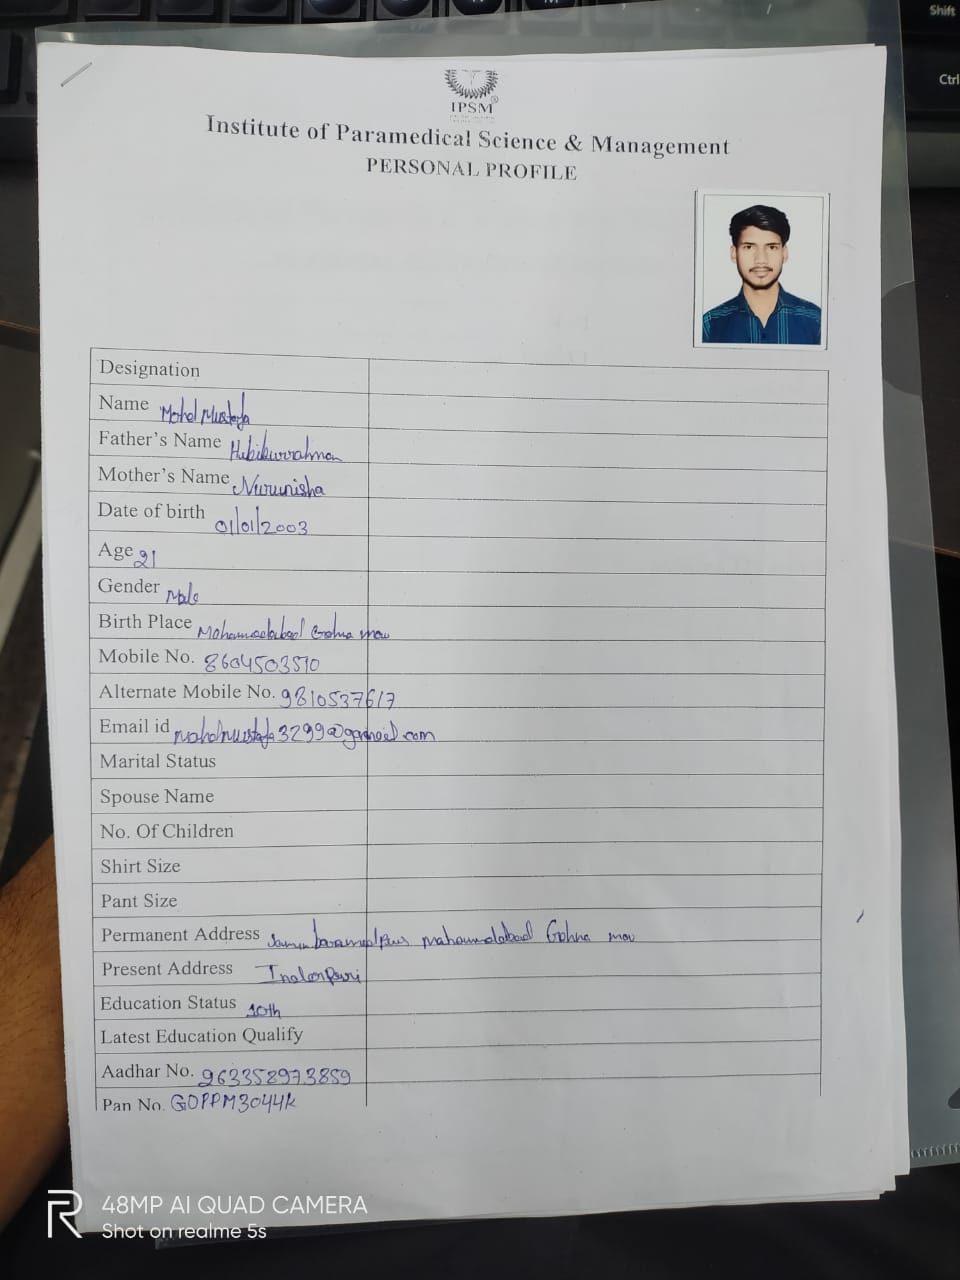 Shift
Ctrl
IPSM®
Institute of Paramedical Science & Management
PERSONAL PROFILE
Designation
Name Mohd Mustafa
Father's Name Habiburrahman
Mother's Name Nurunisha
Date of birth 01/01/2003
Age 21
Gender Male
Birth Place Mohamadabad Gohna mau
Mobile No. 8604503510
Alternate Mobile No. 9810537617
Email id mohdmustafa3299@gameil.com
Marital Status
Spouse Name
No. Of Children
Shirt Size
Pant Size
Permanent Address mahamadabad Gohna mau
Present Address
Education Status 10th
Latest Education Qualify
Aadhar No. 963358973859
Pan No. GOPPM3044K
R
48MP AI QUAD CAMERA
Shot on realme 5s